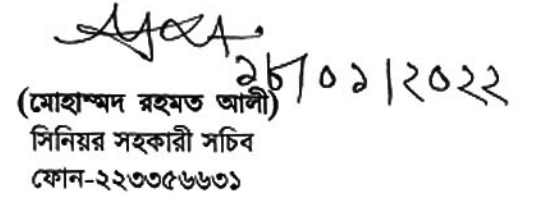 ১৮/০১/২০২২
(মোহাম্মদ রহমত আলী)
সিনিয়র সহকারী সচিব
ফোন-২২৩৩৫৬৬৩১